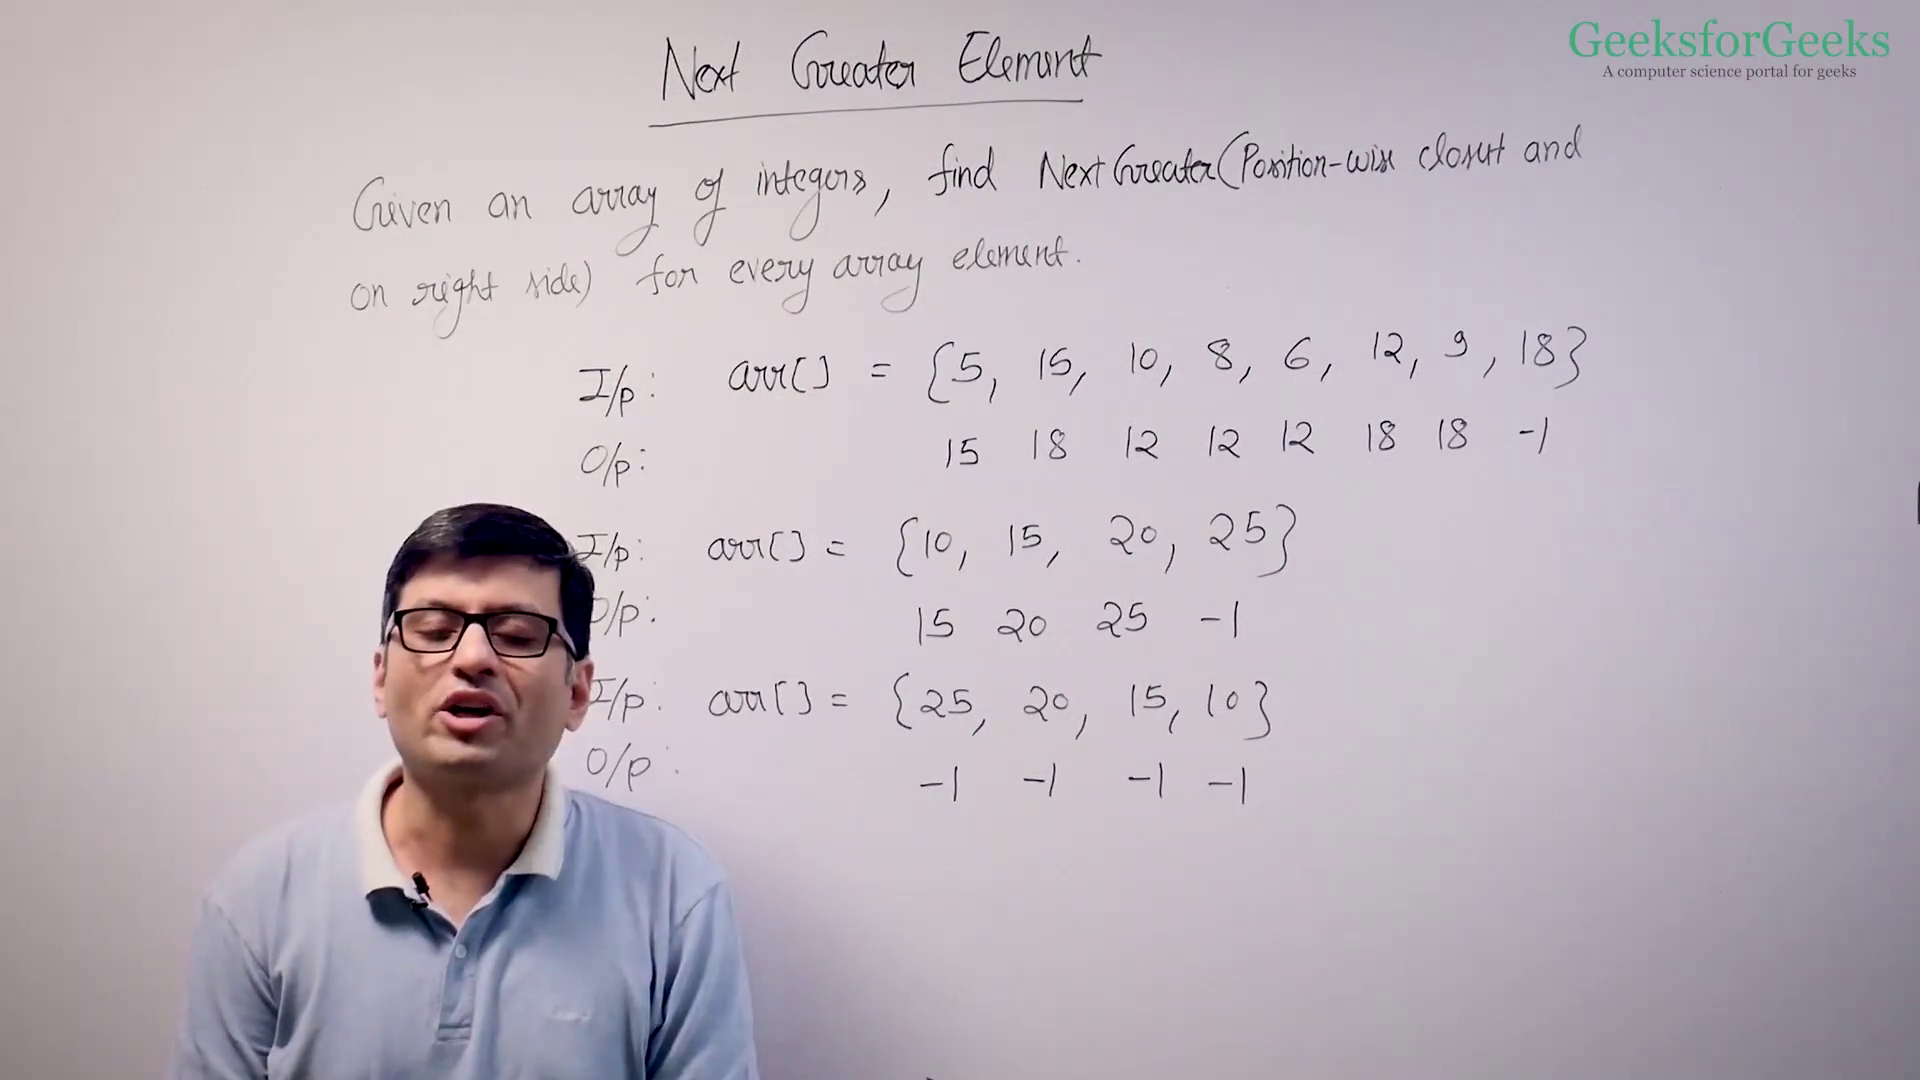 GeeksforGeeks
A computer science portal for geeks
Next Greater Element
Given an array of integers, find Next Greater (Position-wise closest and
on right side) for every array element.
I/p: arr[] = {5, 15, 10, 8, 6, 12, 9, 18}
O/p: 15 18 12 12 12 18 18 -1
I/p: arr[] = {10, 15, 20, 25}
O/p: 15 20 25 -1
I/p: arr[] = {25, 20, 15, 10}
O/p: -1 -1 -1 -1